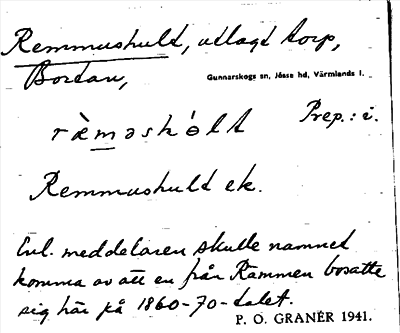 Remmushult, utlagt torp,
Bortan,
Gunnarskogs sn, Jösse hd, Värmlands l.
rèmǝshòlt
Prep.: i.
Remmushult ek.
Enl. meddelaren skulle namnet
komma av att en från Rämmen bosatte
sig här på 1860-70-talet.
P. O. GRANÉR 1941.